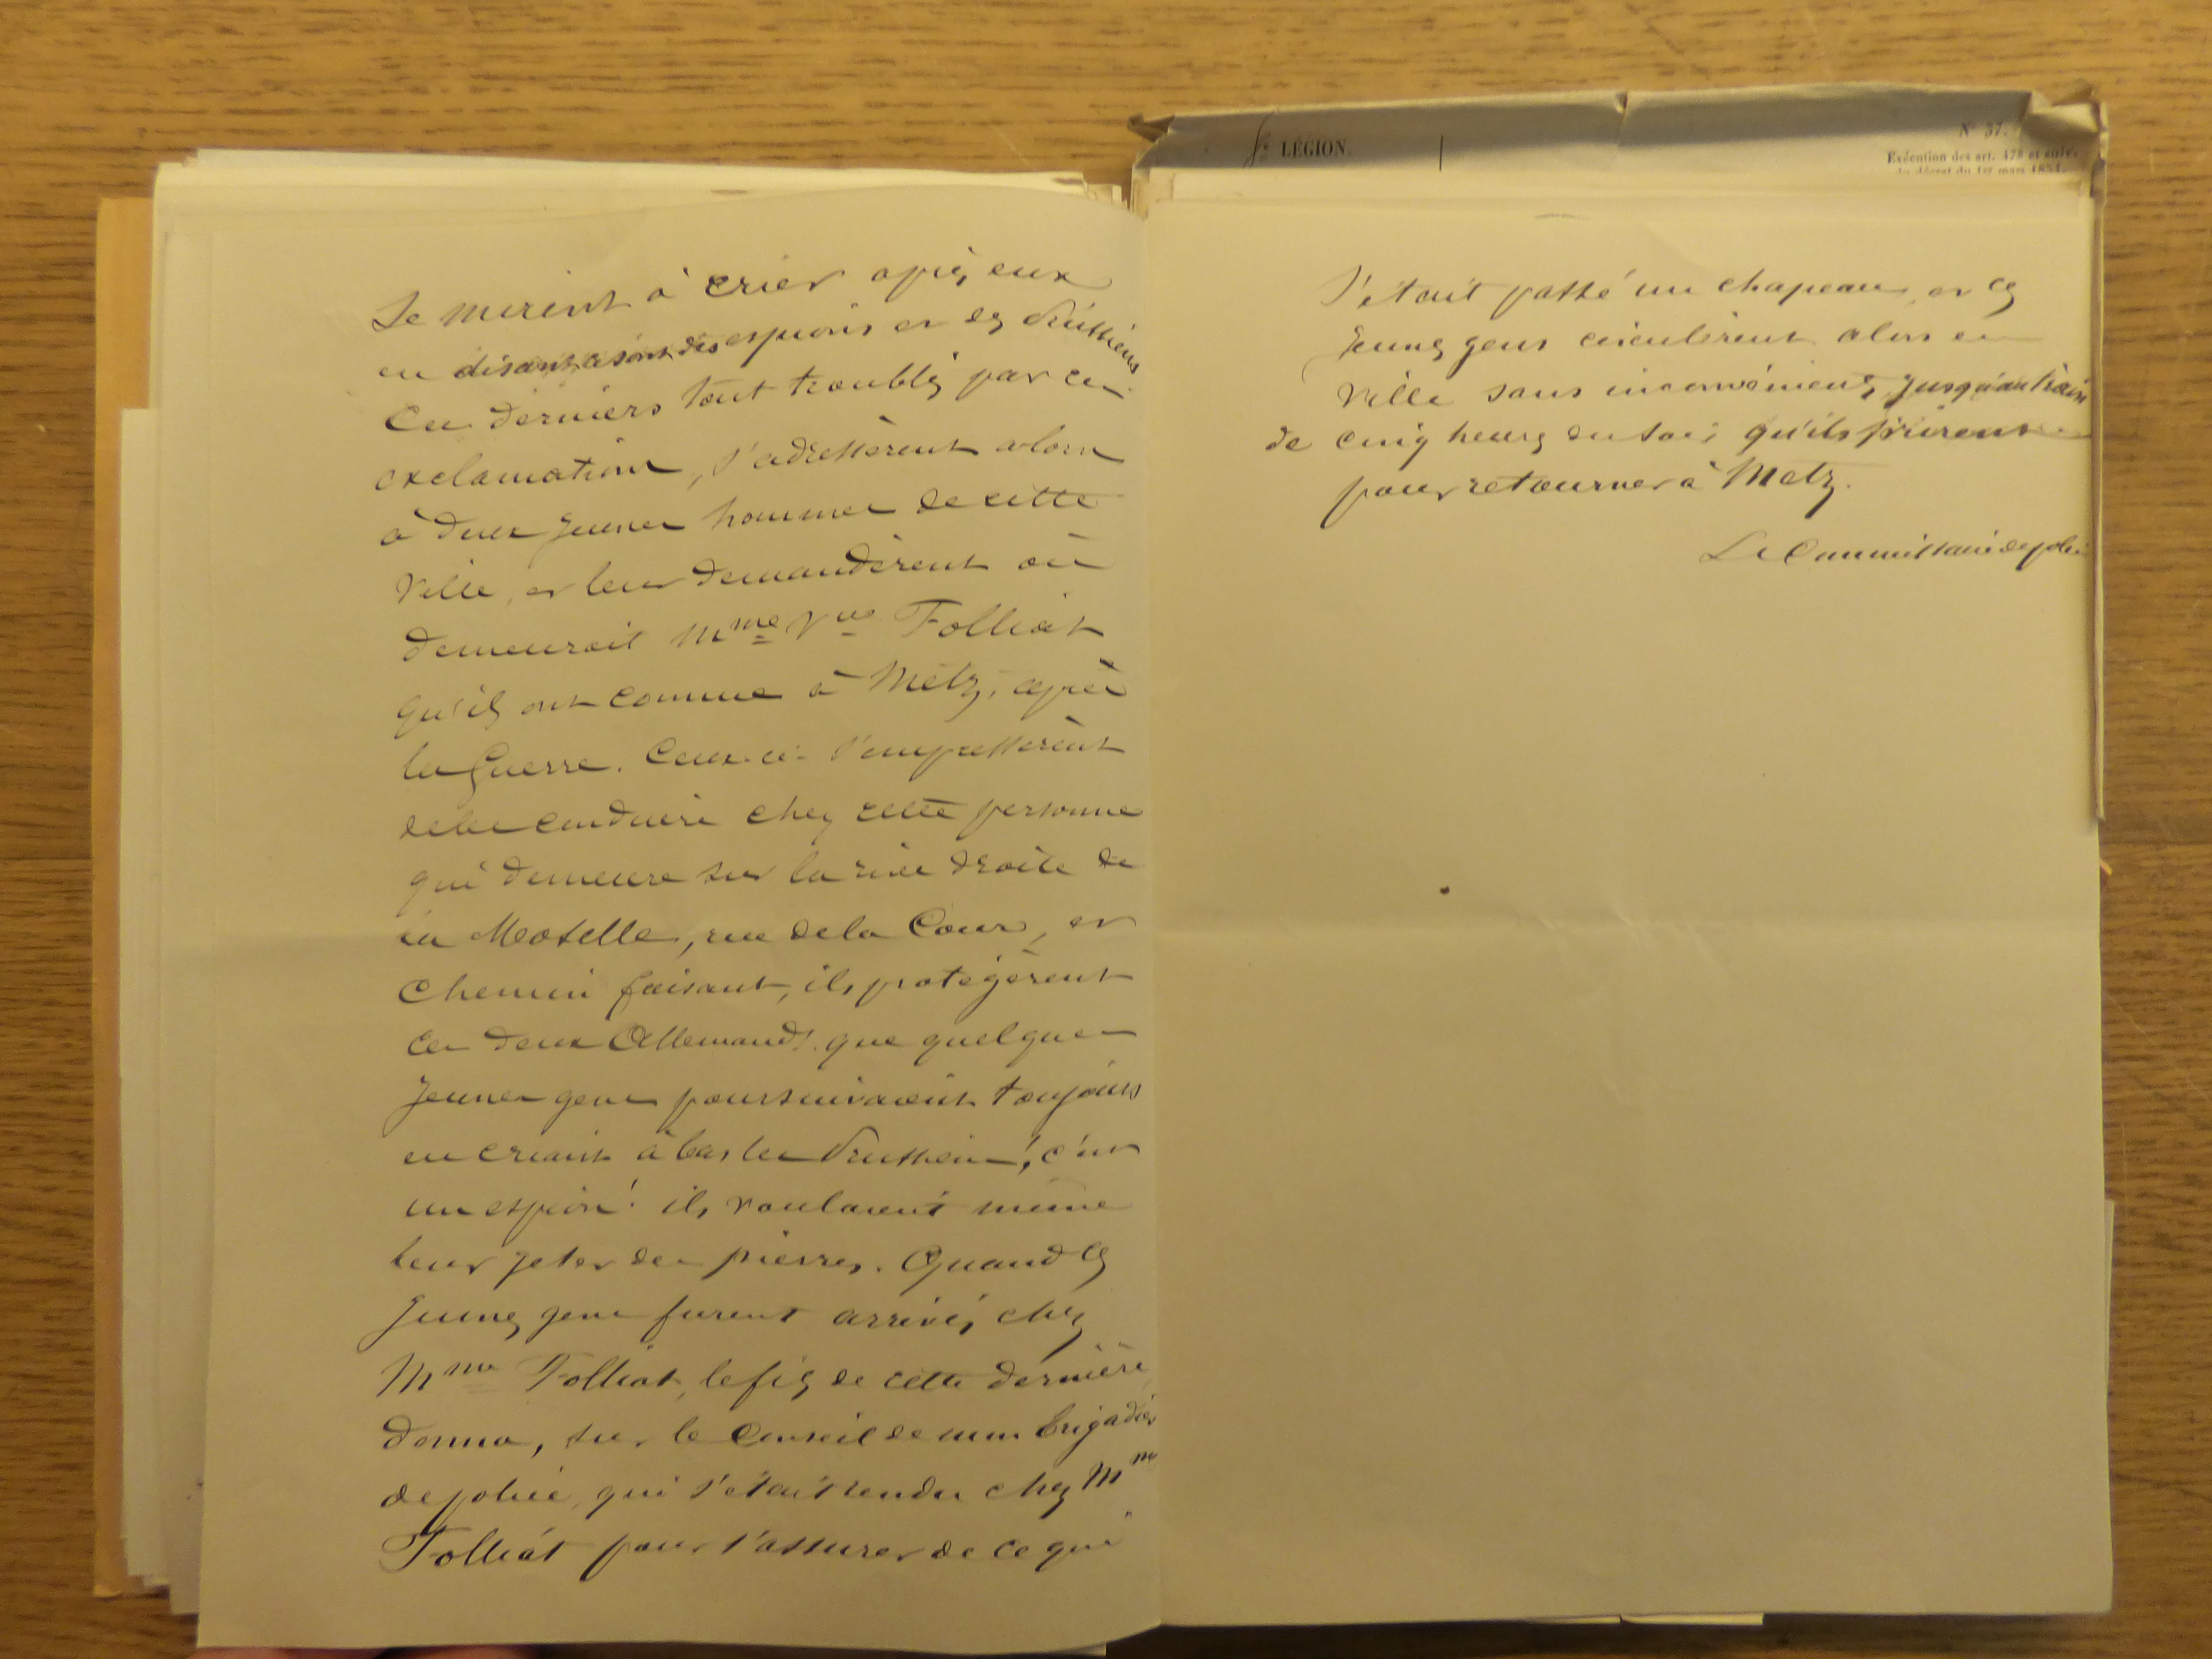 se mirent à crier après eux
en disant ce sont des espions et des Prussiens
Ces derniers tout troublés par ces
exclamations, s'adressèrent alors
à deux jeunes hommes de cette
Ville, et leur demandèrent où
demeurait Mme Vve Folliat
qu'ils ont connue à Metz, après
la Guerre. Ceux-ci s'empressèrent
de les conduire chez cette personne
qui demeure sur la rive droite de
la Moselle, rue de la Cour, et
Chemin faisant, ils protégèrent
ces deux Allemands que quelques
jeunes gens poursuivaient toujours
en criant à bas les Prussiens! c'est
un espion! ils voulaient même
leur jeter des pierres. Quand ces
jeunes gens furent arrivés chez
Mme Folliat, le fils de cette dernière
donna, sur le Conseil de mon brigadier
de police, qui s'était rendu chez Mme
Folliat pour s'assurer de ce qui
Lé LÉGION.
N° 37.
Exécution des art. 478 et suiv.
du décret du 1er mars 1854.
s'était passé un chapeau, et ces
jeunes gens circulèrent alors en
Ville sans inconvénients, jusqu'au train
de cinq heures du soir, qu'ils prirent
pour retourner à Metz.
Le Commissaire de police